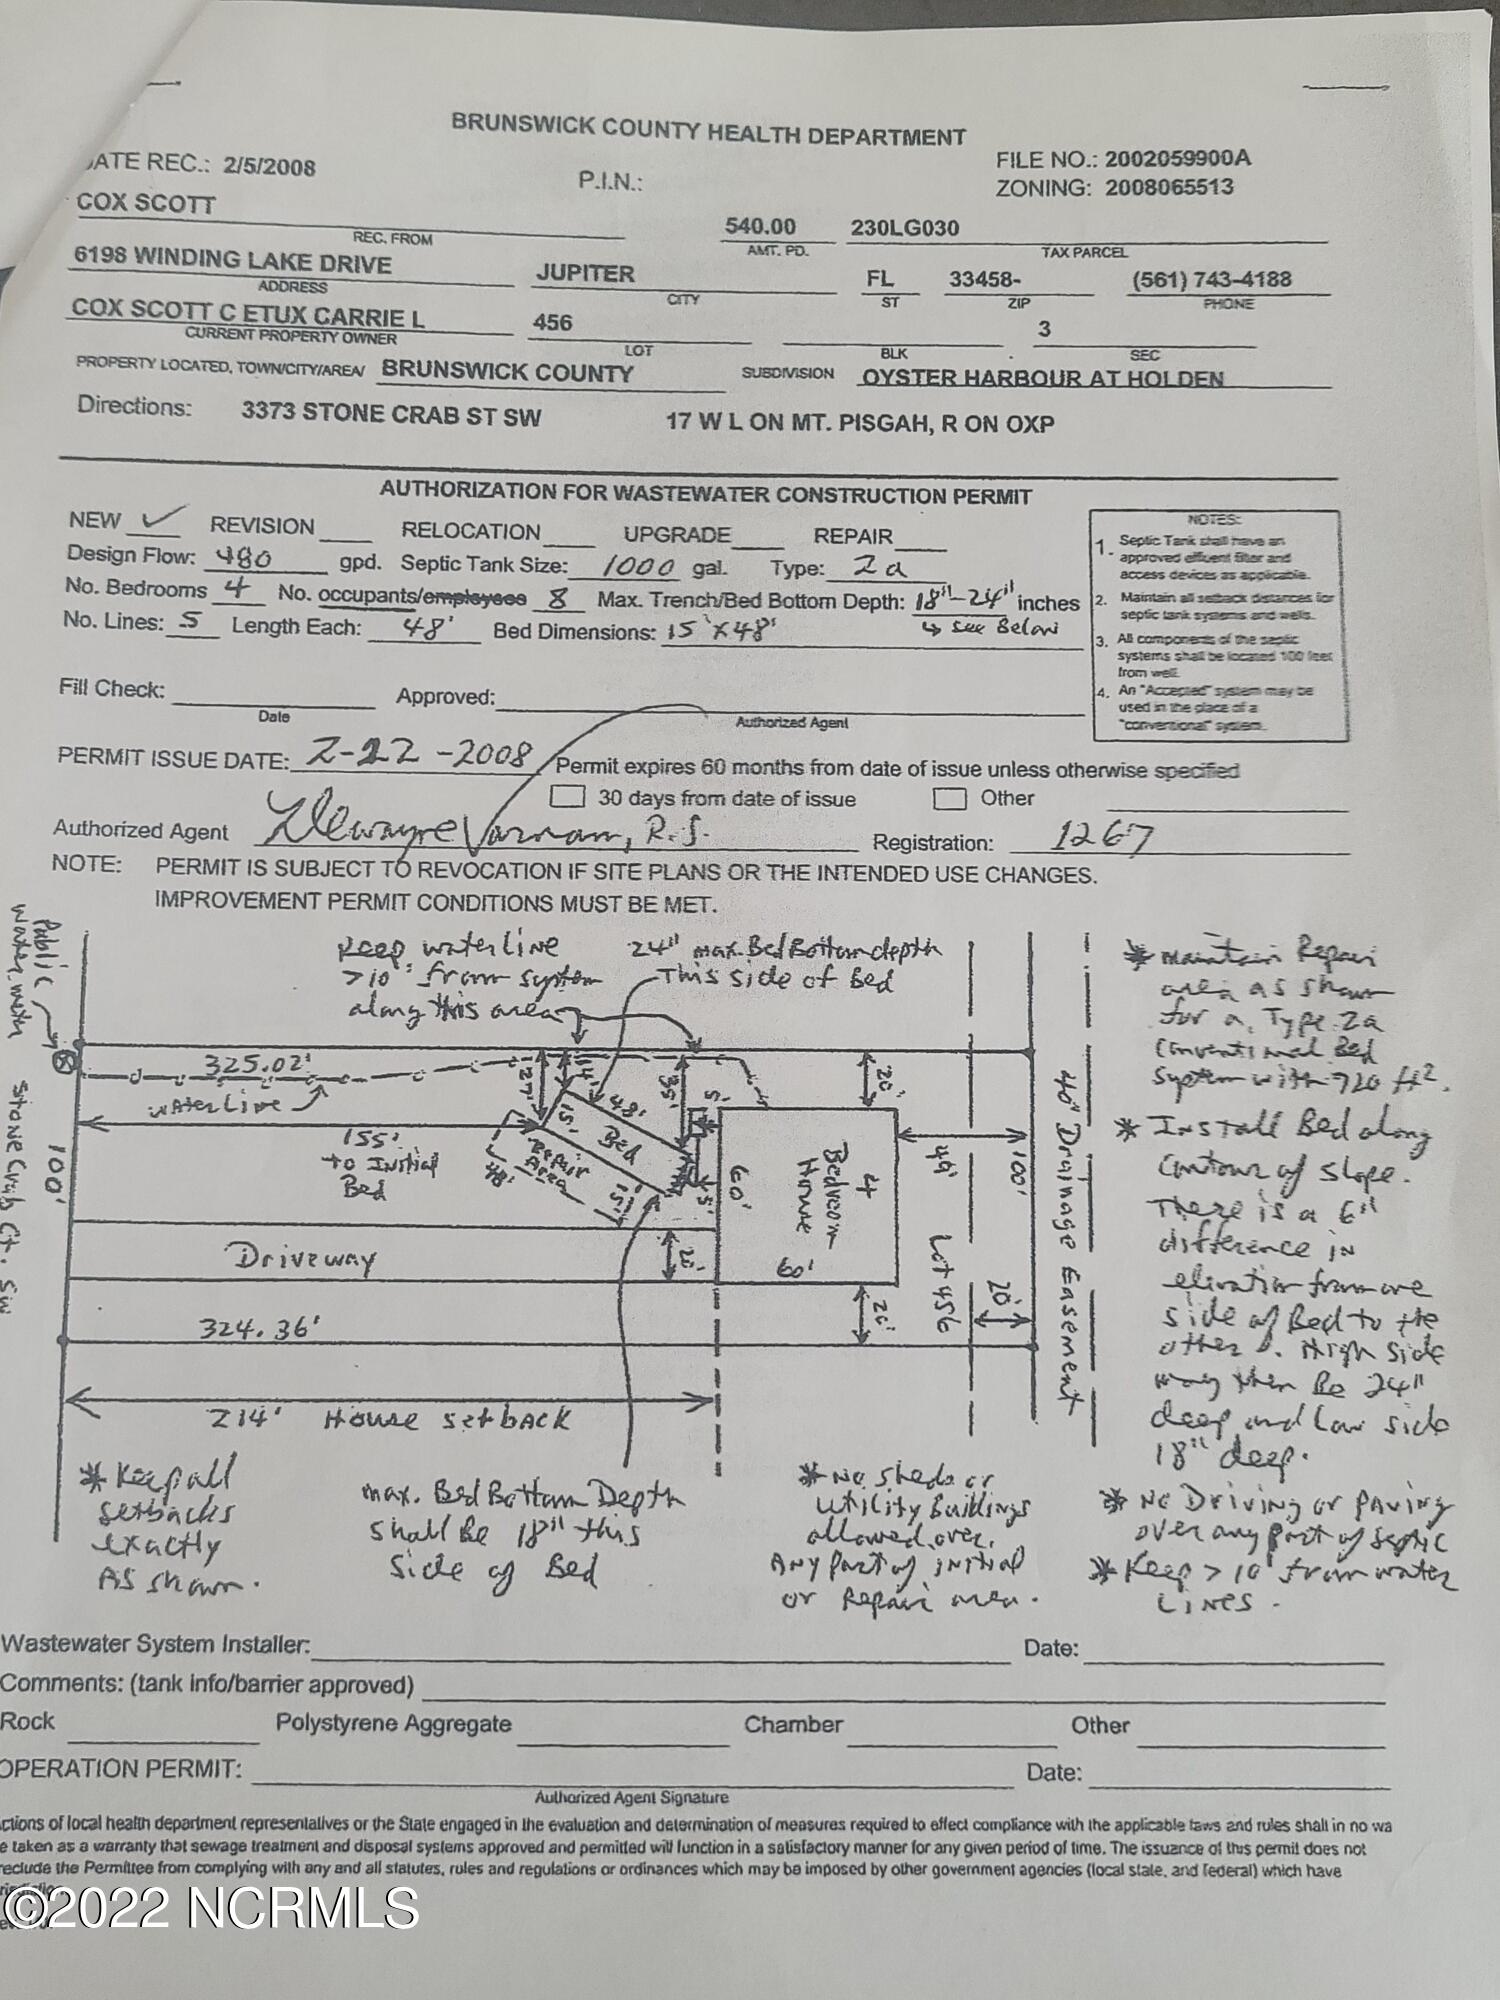 BRUNSWICK COUNTY HEALTH DEPARTMENT
DATE REC.: 2/5/2008
P.I.N.:
FILE NO.: 2002059900A
ZONING: 2008065513
COX SCOTT
REC. FROM
540.00
AMT. PD.
230LG030
TAX PARCEL
6198 WINDING LAKE DRIVE
ADDRESS
JUPITER
CITY
FL
ST
33458-
ZIP
(561) 743-4188
PHONE
COX SCOTT C ETUX CARRIE L
CURRENT PROPERTY OWNER
456
LOT
BLK
3
SEC
PROPERTY LOCATED, TOWN/CITY/AREA/ BRUNSWICK COUNTY
SUBDIVISION OYSTER HARBOUR AT HOLDEN
Directions: 3373 STONE CRAB ST SW 17 W L ON MT. PISGAH, R ON OXP
AUTHORIZATION FOR WASTEWATER CONSTRUCTION PERMIT
NEW ✓ REVISION RELOCATION UPGRADE REPAIR
Design Flow: 480 gpd. Septic Tank Size: 1000 gal. Type: 2a
No. Bedrooms 4 No. occupants/employees 8 Max. Trench/Bed Bottom Depth: 18"-24" inches
↳ see Below
No. Lines: 5 Length Each: 48' Bed Dimensions: 15' x 48'
NOTES:
1. Septic Tank shall have an
approved effluent filter and
access devices as applicable.
2. Maintain all setback distances for
septic tank systems and wells.
3. All components of the septic
systems shall be located 100 feet
from well.
4. An "Accepted" system may be
used in the place of a
"conventional" system.
Fill Check:
Date
Approved:
Authorized Agent
PERMIT ISSUE DATE: 2-22-2008 Permit expires 60 months from date of issue unless otherwise specified
30 days from date of issue Other
Authorized Agent Dewayne Varnam, R.S. Registration: 1267
NOTE: PERMIT IS SUBJECT TO REVOCATION IF SITE PLANS OR THE INTENDED USE CHANGES.
IMPROVEMENT PERMIT CONDITIONS MUST BE MET.
Public
water meter
Keep waterline
>10' from system
along this area
24" max. Bed Bottom depth
This side of Bed
325.02'
waterline
155'
to Initial
Bed
27'
14'
48'
15'
Bed
Repair
Area
48'
15'
35'
5'
5'
20'
60'
4
Bedroom
House
60'
49'
100'
40' Drainage Easement
Lot 456
20'
Stone Crab Ct. SW
100'
Driveway
20'
20'
324.36'
214' House setback
* Maintain Repair
area as shown
for a Type 2a
Conventional Bed
System with 720 ft².
* Install Bed along
contour of slope.
There is a 6"
difference in
elevation from one
side of Bed to the
other. High side
may then Be 24"
deep and Low side
18" deep.
* Keep all
setbacks
exactly
As shown.
max. Bed Bottom Depth
shall Be 18" this
side of Bed
* No Sheds or
Utility Buildings
allowed over
Any part of initial
or Repair area.
* No Driving or paving
over any part of septic
* Keep >10' from water
Lines.
Wastewater System Installer: Date:
Comments: (tank info/barrier approved)
Rock Polystyrene Aggregate Chamber Other
OPERATION PERMIT: Date:
Authorized Agent Signature
ctions of local health department representatives or the State engaged in the evaluation and determination of measures required to effect compliance with the applicable laws and rules shall in no wa
e taken as a warranty that sewage treatment and disposal systems approved and permitted will function in a satisfactory manner for any given period of time. The issuance of this permit does not
reclude the Permittee from complying with any and all statutes, rules and regulations or ordinances which may be imposed by other government agencies (local state, and federal) which have
©2022 NCRMLS